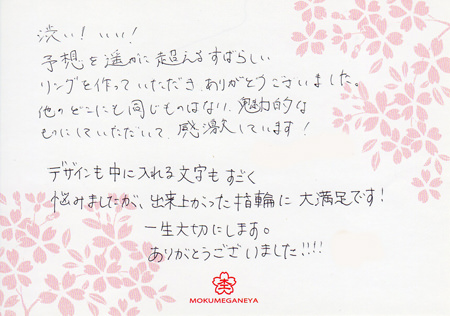 渋い!いい!
予想を遥かに超えるすばらしい
リングを作っていただき、ありがとうございました。
他のどこにも同じものはない、魅力的な
ものにしていただいて、感激しています!
デザインも中に入れる文字もすごく
悩みましたが、出来上がった指輪に大満足です!
一生大切にします。
ありがとうございました!!!!
MOKUMEGANEYA